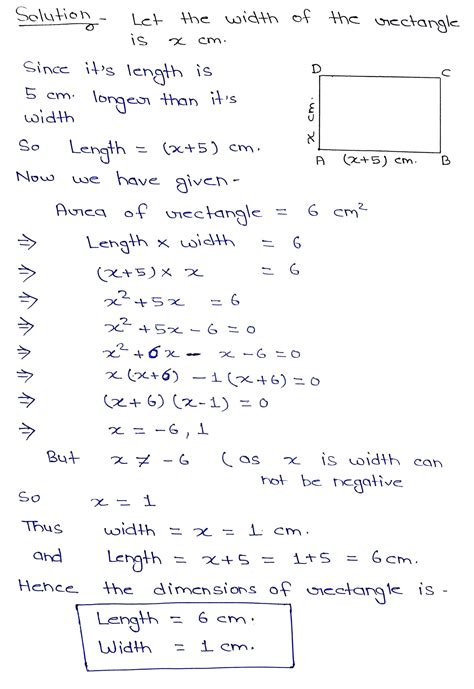 Solution - Let the width of the rectangle
is x cm.
Since it's length is
5 cm. longer than it's
width
So Length = (x+5) cm.
D
C
x cm.
A
(x+5) cm.
B
Now we have given -
Area of rectangle = 6 cm²
⇒ Length × width = 6
⇒ (x+5) × x = 6
⇒ x² + 5x = 6
⇒ x² + 5x - 6 = 0
⇒ x² + 6x - x - 6 = 0
⇒ x(x+6) - 1(x+6) = 0
⇒ (x+6) (x-1) = 0
⇒ x = -6, 1
But x ≠ -6 (as x is width can
not be negative
So x = 1
Thus width = x = 1 cm.
and Length = x+5 = 1+5 = 6 cm.
Hence the dimensions of rectangle is -
Length = 6 cm.
Width = 1 cm.